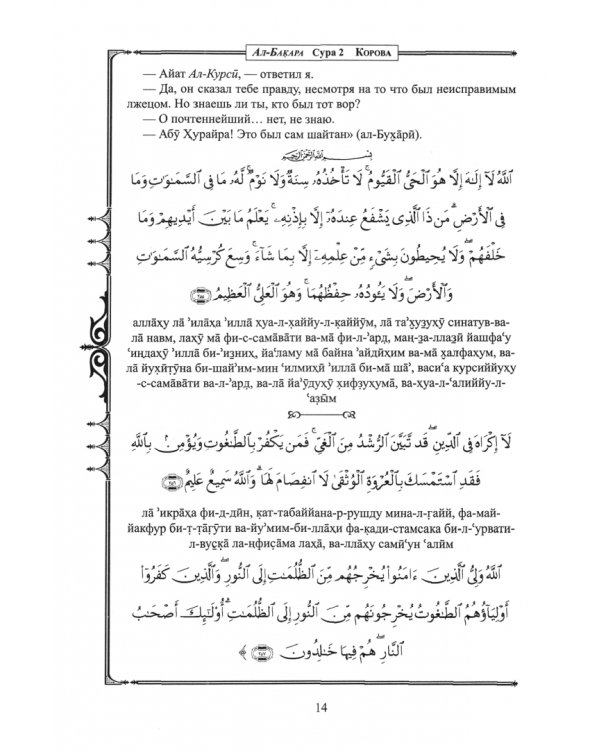 Ал-Бак̣ара Сура 2 Корова
— Айат Ал-Курсӣ, — ответил я.
— Да, он сказал тебе правду, несмотря на то что был неисправимым
лжецом. Но знаешь ли ты, кто был тот вор?
— О почтеннейший… нет, не знаю.
— Абӯ Ҳурайра! Это был сам шайтан» (ал-Бух̮а̄рӣ).
بِسْمِ ٱللَّهِ ٱلرَّحْمَٰنِ ٱلرَّحِيمِ
ٱللَّهُ لَآ إِلَٰهَ إِلَّا هُوَ ٱلْحَىُّ ٱلْقَيُّومُ ۚ لَا تَأْخُذُهُۥ سِنَةٌ وَلَا نَوْمٌ ۚ لَّهُۥ مَا فِى ٱلسَّمَٰوَٰتِ وَمَا
فِى ٱلْأَرْضِ ۗ مَن ذَا ٱلَّذِى يَشْفَعُ عِندَهُۥٓ إِلَّا بِإِذْنِهِۦ ۚ يَعْلَمُ مَا بَيْنَ أَيْدِيهِمْ وَمَا
خَلْفَهُمْ ۖ وَلَا يُحِيطُونَ بِشَىْءٍ مِّنْ عِلْمِهِۦٓ إِلَّا بِمَا شَآءَ ۚ وَسِعَ كُرْسِيُّهُ ٱلسَّمَٰوَٰتِ
وَٱلْأَرْضَ ۖ وَلَا يَـُٔودُهُۥ حِفْظُهُمَا ۚ وَهُوَ ٱلْعَلِىُّ ٱلْعَظِيمُ ٢٥٥
аллāҳу лā ʼилāҳа ʼиллā ҳуа-л-ҳаййу-л-қаййӯм, лā таʼҳузуҳӯ синатув-ва-
лā навм, лаҳӯ мā фи-с-самāвāти ва-мā фи-л-ʼард, маң-за-ллаз̱ӣ йашфаʻу
ʻиңдаҳӯ ʼиллā би-ʼизниҳ, йаʻламу мā байна ʼайдӣҳим ва-мā ҳалфаҳум, ва-
лā йуҳӣт̣ӯна би-шайʼим-мин ʻилмиҳӣ ʼиллā би-мā шāʼ, васиʻа курсиййуҳу
-с-самāвāти ва-л-ʼард, ва-лā йаʼӯдуҳӯ ҳифз̣уҳумā, ва-ҳуа-л-ʻалиййу-л-
ʻаз̣ӣм
لَآ إِكْرَاهَ فِى ٱلدِّينِ ۖ قَد تَّبَيَّنَ ٱلرُّشْدُ مِنَ ٱلْغَىِّ ۚ فَمَن يَكْفُرْ بِٱلطَّٰغُوتِ وَيُؤْمِنۢ بِٱللَّهِ
فَقَدِ ٱسْتَمْسَكَ بِٱلْعُرْوَةِ ٱلْوُثْقَىٰ لَا ٱنفِصَامَ لَهَا ۗ وَٱللَّهُ سَمِيعٌ عَلِيمٌ ٢٥٦
лā ʼикрāҳа фи-д-дӣн, қат-табаййана-р-рушду мина-л-ғайй, фа-май-
йакфур би-т̣-т̣āғӯти ва-йуʼмим-би-ллāҳи фа-қади-стамсака би-л-ʻурвати-
л-вус̱қā ла-ңфис̣āма лаҳā, ва-ллāҳу самӣʻун ʻалӣм
ٱللَّهُ وَلِىُّ ٱلَّذِينَ ءَامَنُوا۟ يُخْرِجُهُم مِّنَ ٱلظُّلُمَٰتِ إِلَى ٱلنُّورِ ۖ وَٱلَّذِينَ كَفَرُوٓا۟
أَوْلِيَآؤُهُمُ ٱلطَّٰغُوتُ يُخْرِجُونَهُم مِّنَ ٱلنُّورِ إِلَى ٱلظُّلُمَٰتِ ۗ أُو۟لَٰٓئِكَ أَصْحَٰبُ
ٱلنَّارِ ۖ هُمْ فِيهَا خَٰلِدُونَ ٢٥٧
14